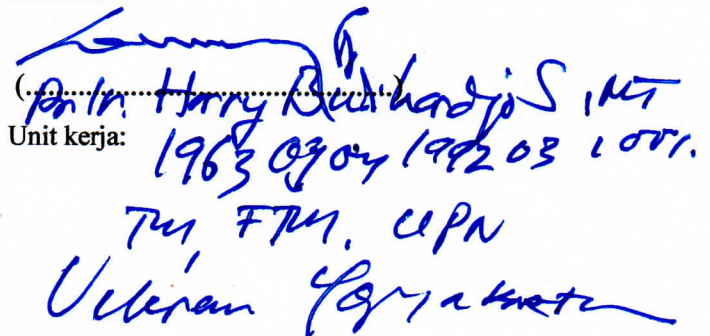 (....................................................)
Dr. Ir. Harry Budihardjo S, MT
Unit kerja:
1963 0704 1992 03 1 001.
TM, FTM, UPN
Veteran Yogyakarta